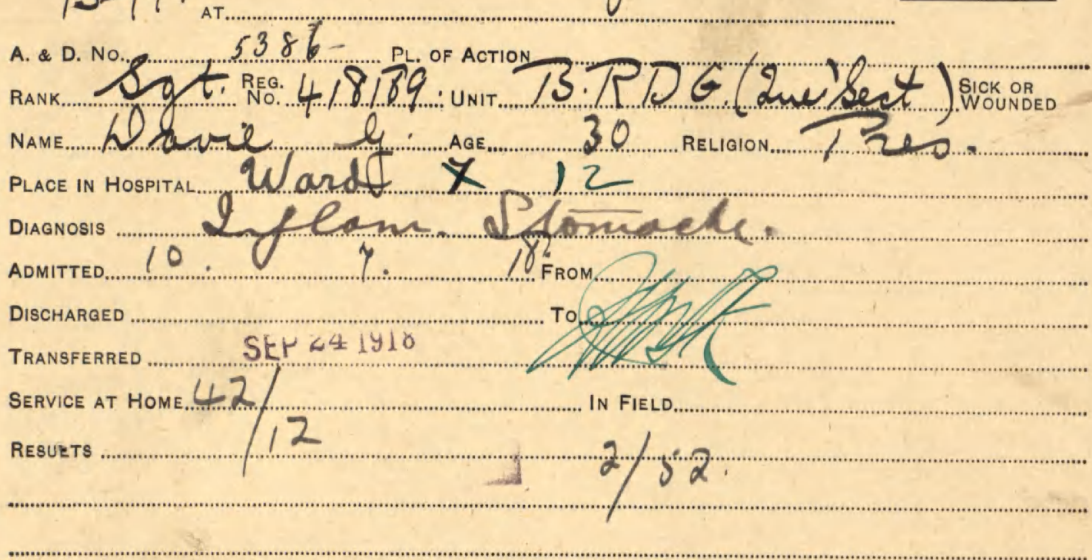 AT
A. & D. No. 5386 PL. OF ACTION
RANK Sgt. REG. No. 418189 UNIT B.R.D.G. (Que' Sect) SICK OR WOUNDED
NAME Davie G. AGE 30 RELIGION Pres.
PLACE IN HOSPITAL Ward X 12
DIAGNOSIS Inflam. Stomache.
ADMITTED 10. 7. 18 FROM
DISCHARGED TO
TRANSFERRED SEP 24 1918
SERVICE AT HOME 42/12 IN FIELD 2/52.
RESULTS